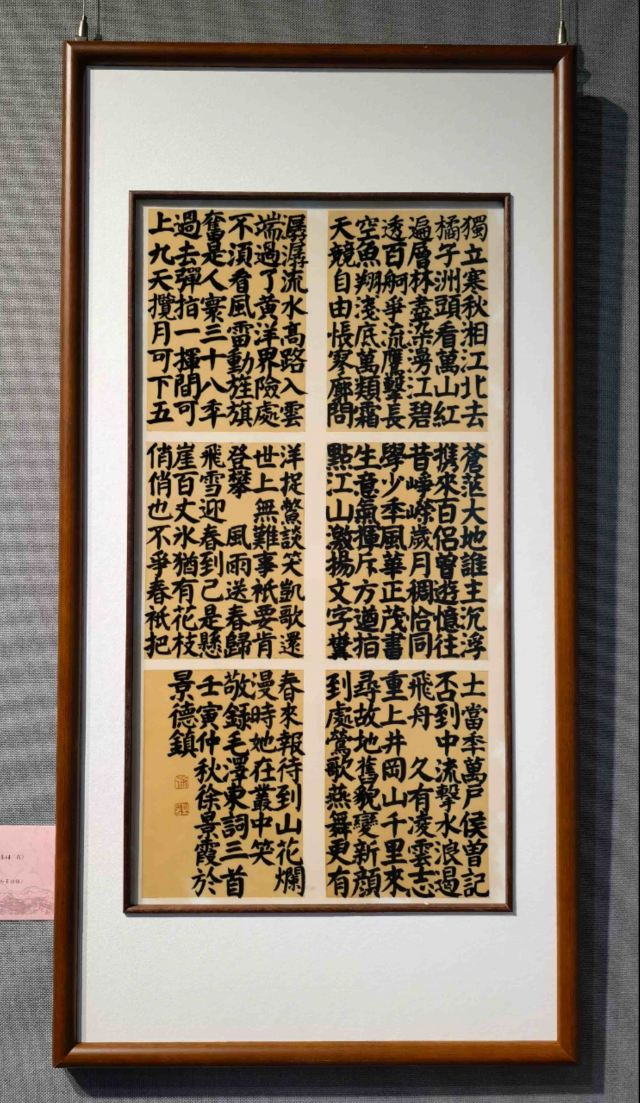 獨立寒秋湘江北去
橘子洲頭看萬山紅
遍層林盡染漫江碧
透百舸爭流鷹擊長
空魚翔淺底萬類霜
天競自由悵寥廓問
蒼茫大地誰主沉浮
携來百侶曾遊憶往
昔崢嶸歲月稠恰同
學少年風華正茂書
生意氣揮斥方遒指
點江山激揚文字糞
土當年萬戶侯曾記
否到中流擊水浪遏
飛舟 久有凌雲志
重上井岡山千里來
尋故地舊貌變新顏
到處鶯歌燕舞更有
潺潺流水高路入雲
端過了黃洋界險處
不須看風雷動旌旗
奮是人寰三十八年
過去彈指一揮間可
上九天攬月可下五
洋捉鱉談笑凱歌還
世上無難事衹要肯
登攀 風雨送春歸
飛雪迎春到已是懸
崖百丈冰猶有花枝
俏俏也不爭春衹把
春來報待到山花爛
漫時她在叢中笑
敬録毛澤東詞三首
壬寅仲秋徐景霞於
景德鎮